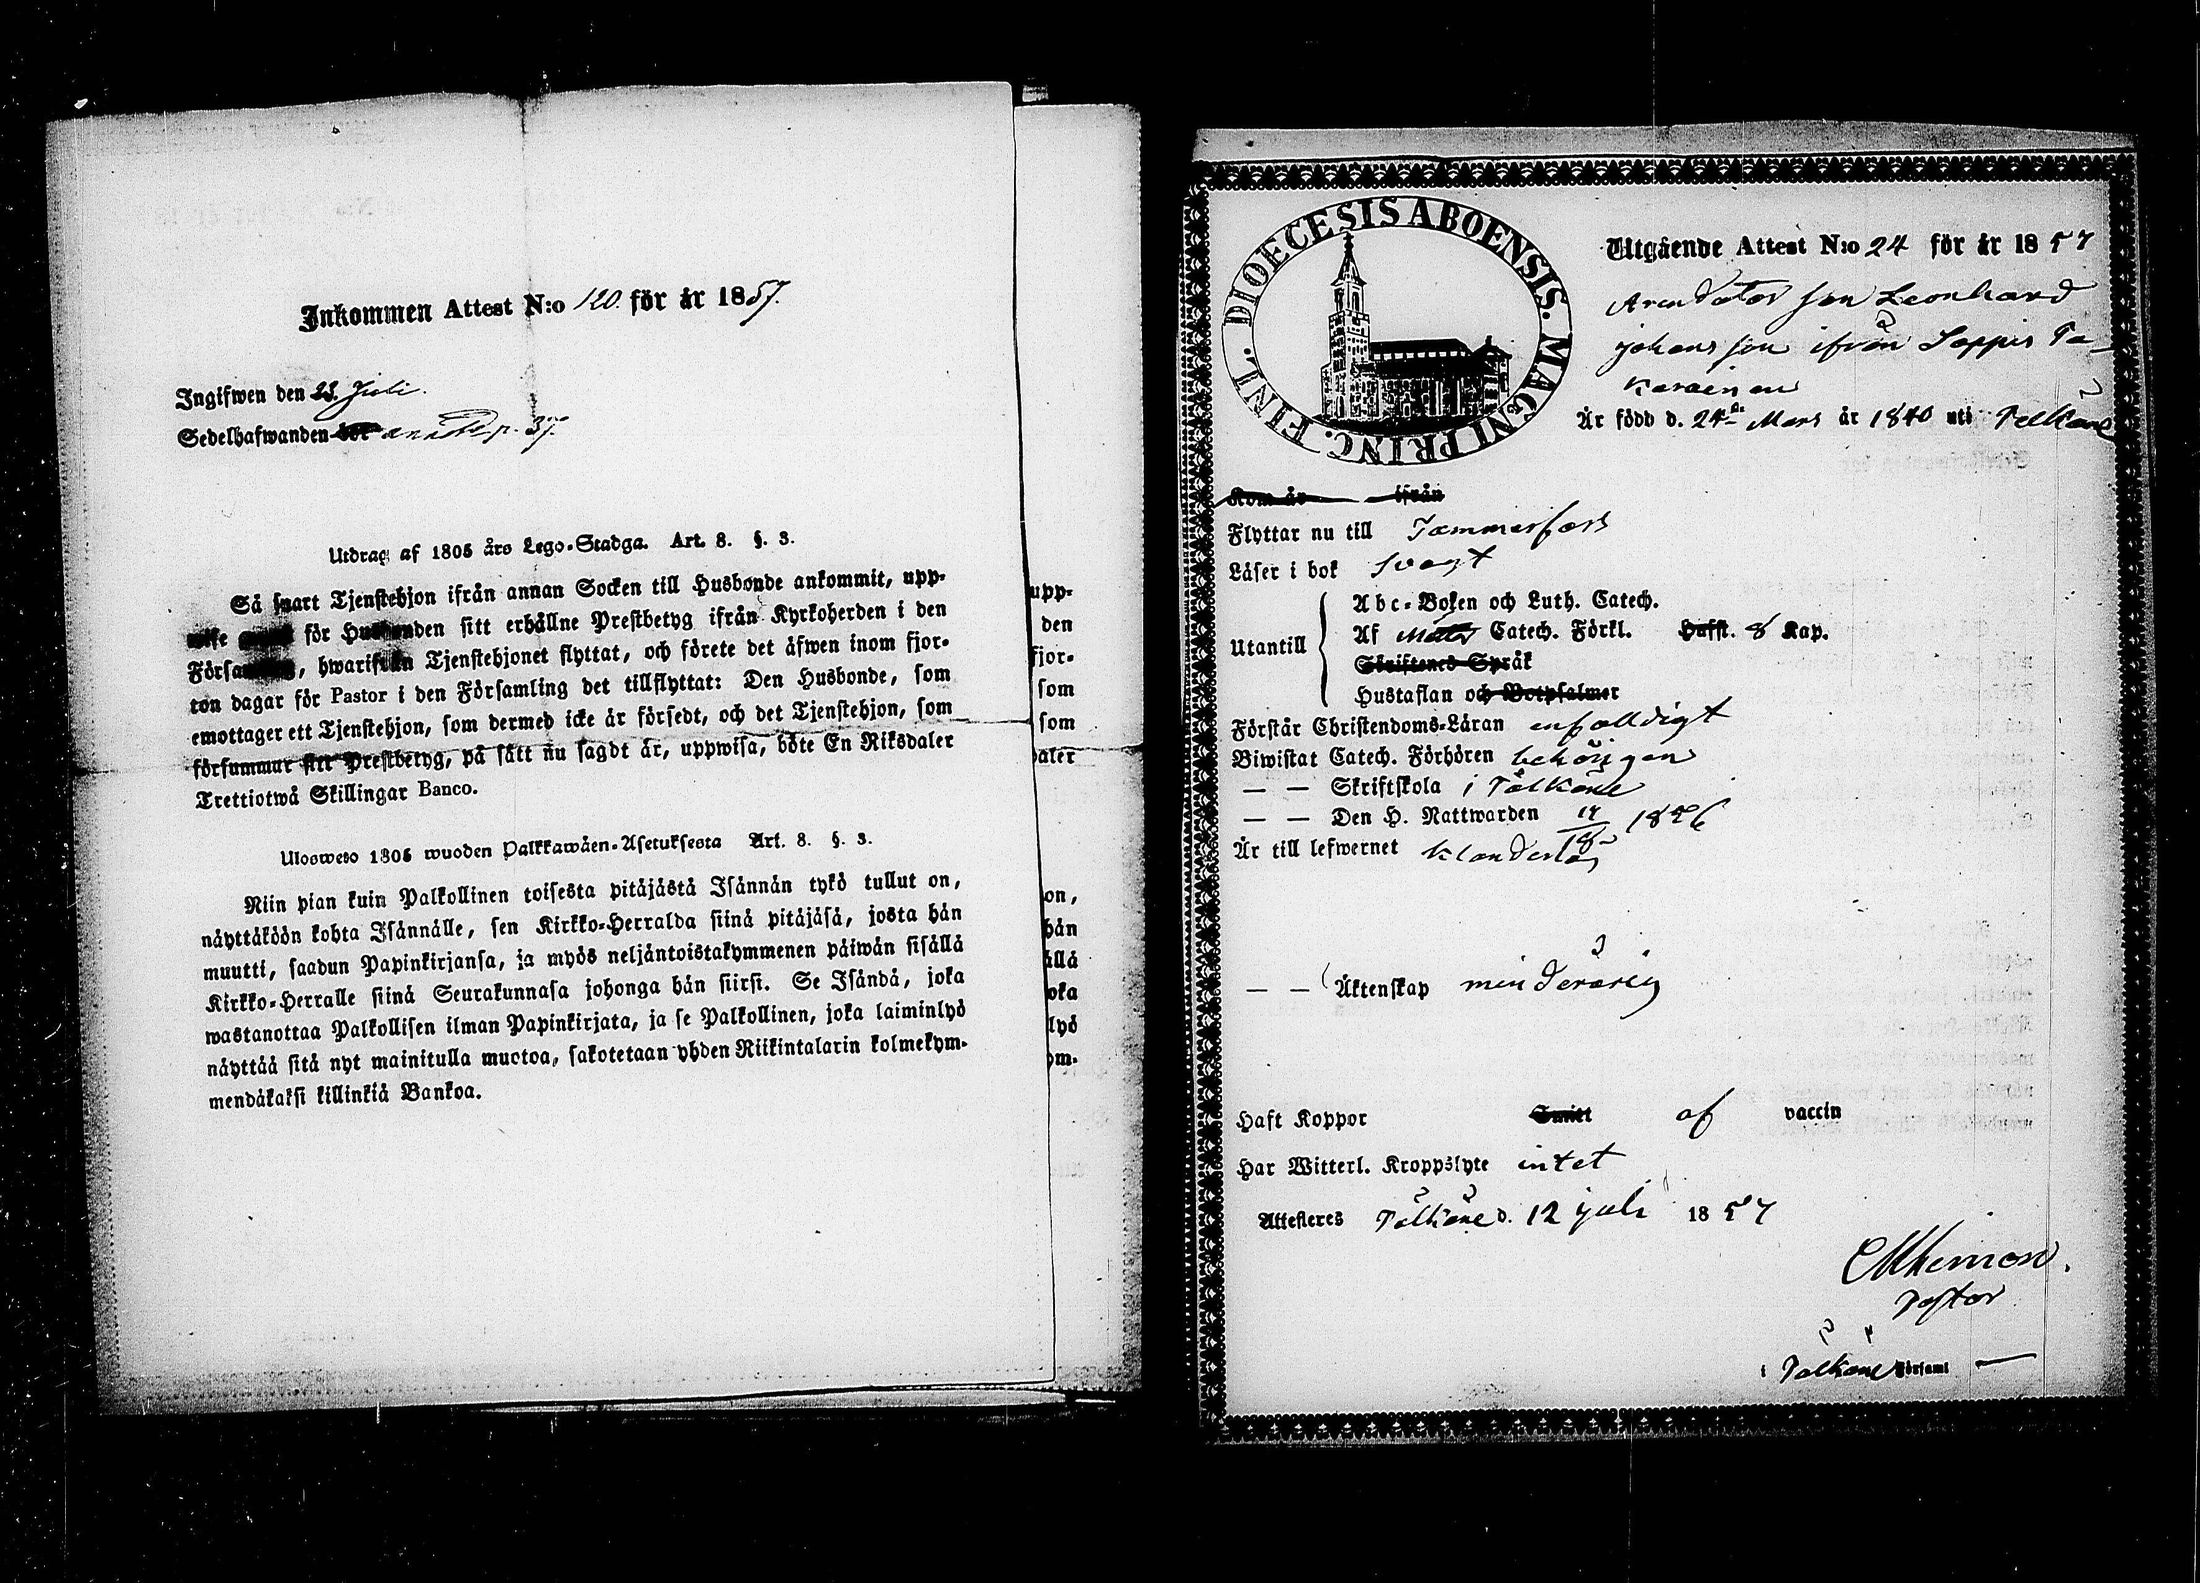 Inkommen Attest N:o 120. för år 1857.
Ingifwen den 23. Juli.
Sedelhafwanden bör p. 37.
Utdrag af 1805 års Lego-Stadga. Art. 8. §. 3.
Så snart Tjenstehjon ifrån annan Socken till Husbonde ankommit, upp-
wise för Husbonden sitt erhållne Prestbetyg ifrån Kyrkoherden i den
Församling, hwarifrån Tjenstehjonet flyttat, och förete det äfwen inom fjor-
ton dagar för Pastor i den Församling det tillflyttat: Den Husbonde, som
emottager ett Tjenstehjon, som dermed icke är försedt, och det Tjenstehjon, som
försummar sitt Prestbetyg, på sätt nu sagdt är, uppwisa, böte En Riksdaler
Trettiotwå Skillingar Banco.
Ulosweto 1805 wuoden Palkkawäen-Asetuksesta Art. 8. §. 3.
Niin pian kuin Palkollinen toisesta pitäjästä Isännän tykö tullut on,
näyttäköön kohta Isännälle, sen Kirkko-Herralda siinä pitäjäsä, josta hän
muutti, saadun Papinkirjansa, ja myös neljäntoistakymmenen päiwän sisällä
Kirkko-Herralle siinä Seurakunnasa johonga hän siirsi. Se Isändä, joka
wastanottaa Palkollisen ilman Papinkirjata, ja se Palkollinen, joka laiminlyö
näyttää sitä nyt mainitulla muotoa, sakotetaan yhden Riikintalarin kolmekym-
mendäkaksi killinkiä Bankoa.
upp-
den
fjor-
som
som
daler
on,
hän
ällä
oka
lyö
ym-
DIOECESIS ABOENSIS. MAGNI PRINC. FINL.
Utgående Attest N:o 24 för år 1857
Arendator son Leonhard
Johansson ifrån Seppis Pa-
karainen
Är född d. 24de Mars år 1840 uti Pelkäne
Kom år ifrån
Flyttar nu till Tammerfors
Läser i bok svagt
Utantill
Abc-Boken och Luth. Catech.
Af Catech. Förkl. Hufst. 8 Kap.
Skriftenes Språk
Hustaflan och Botpsalmer
Förstår Christendoms-Läran enfalldigt
Biwistat Catech. Förhören behörigen
— — Skriftskola i Pälkäne
— — Den H. Nattwarden 1856
Är till lefwernet klanderlös
— — Äktenskap minderårig
Haft Koppor Smitt af vaccin
Har Witterl. Kroppslyte intet
Attesteres Pälkäne d. 12 juli 1857
Pastor
i Pälkäne Församl